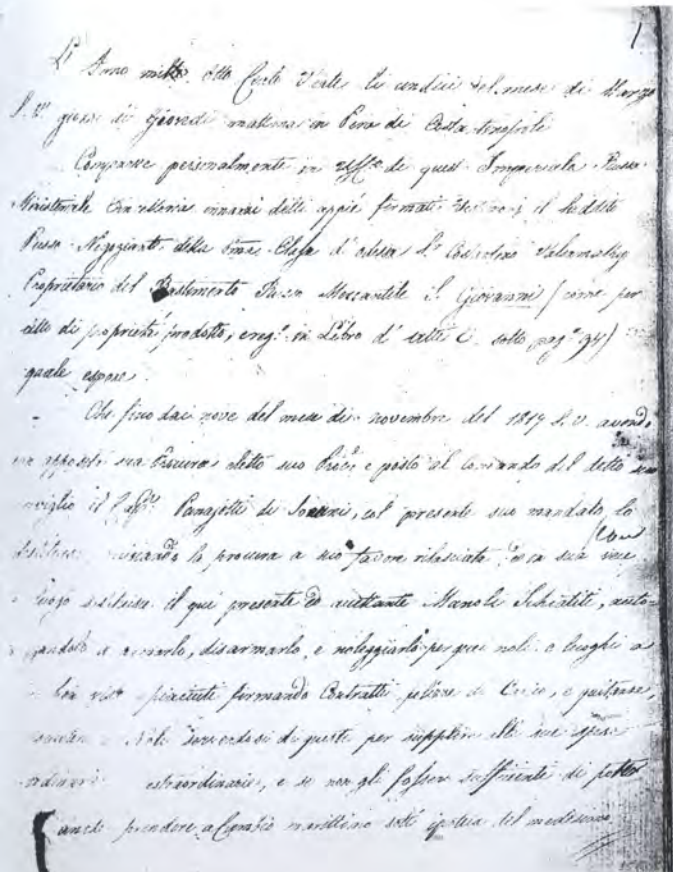 1
L' Anno mille otto Cento Venti li undici del mese di Marzo
S. V. giorno di Giovedi mattina in Pera di Costantinopoli
Comparve personalmente in uff.º di quest' Imperiale Russa
Ministeriale Cancelleria innanzi delli appié firmati il suddito
Russo Negoziante della Classe d' odessa S.r Costantino
Proprietario del Bastimento Russo Mercantile S. Giovanni / come per
atto di proprietá prodotto, e reg.º in Libro d' atti C. sotto pag.ª 94)
quale espone
Che fino dai nove del mese di novembre del 1817 S. V. avendo
apposito sua Procura detto suo e posto al Comando del detto suo
naviglio il Panajotti di Joanni, col presente suo mandato, lo
la procura a suo favore rilasciata in sua vece
e luogo sostituisce il qui presente ed accettante Manoli Schiatiti, auto-
rizzandolo a armarlo, disarmarlo, e noleggiarlo per quei noli o luoghi a
ben visti e piaciuti firmando Contratti polizze di Carico, e quitanze,
Noli servendosi di questi per supplire alle sue spese
ordinarie estraordinarie, e se non gli fossero sufficiente di poter
anche prendere a Cambio marittimo sotto ipoteca del medesimo